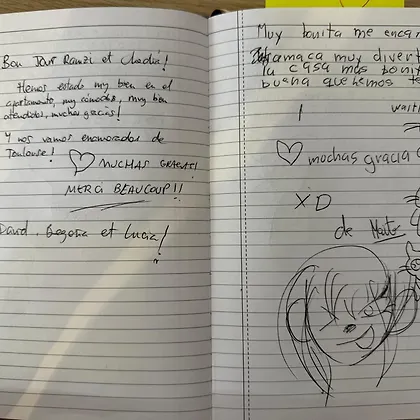 Bon Jour Ramzi et Nadia!
Hemos estado muy bien en el
apartamento, muy cómodos, muy bien
atendidos, muchas gracias!
Y nos vamos enamorados de
Toulouse!
MUCHAS GRACIAS!
MERCI BEAUCOUP!!
David, Begoña et Lucia!
Muy bonita me encan
amaca muy divert
la casa mas bonit
buena que hemos te
1
wait
mochas gracia
XD
de